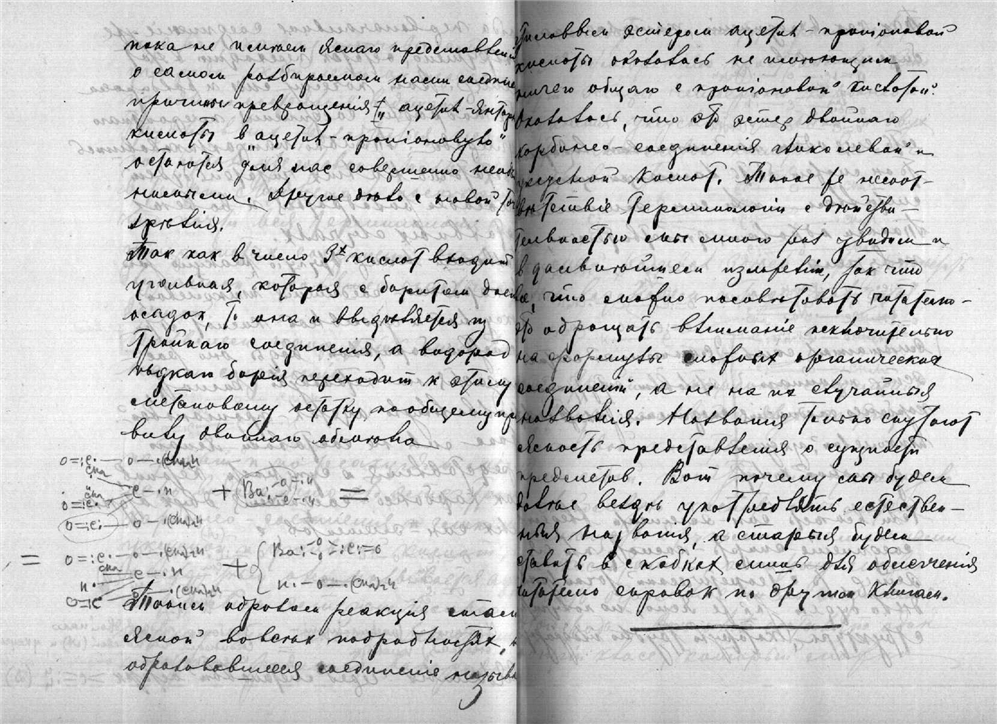 пока не имѣемъ яснаго представленія
о самомъ разбираемомъ нами соедине
причины превращенія "ацетил-янтар
кислоты в "ацетил-пропіоновую"
остаются для нас совершенно непо
нятными. Другое дѣло с новой то
зрѣнія.
Так как в число 3х кислот входит
угольная, которая с баритом дает
осадок, то она и выдѣляется из
тройнаго соединенія, а водород
ѣдкаго барія переходит к этому
метановому остатку по общему пра
вилу двойнаго обмѣна
+ =
= +
Таким образом реакція стала
ясной во всѣх подробностях, а
образовавшееся соединеніе называ
этиловым эстером ацетил-пропіоновой
кислоты оказалось не имѣющим
ничего общаго с пропіоновой кислотой.
Оказалось, что это эстер двойнаго
карбонео-соединенія гликолевой и
уксусной кислот. Такое же несоот-
вѣтствіе терминологіи с дѣйстви-
тельностью мы много раз увидим и
в дальнѣйшем изложеніи, так что
все, что можно посовѣтовать читателю-
это обращать вниманіе исключительно
на формулы сложных органических
соединеній, а не на их случайныя
названія. Названія только спутают
ясность представленія о сущности
предметов. Вот почему мы будем
вездѣ употреблять естествен-
ныя названія, а старыя будем
ставить в скобках лишь для облегченія
читателю справок по другим книгам.